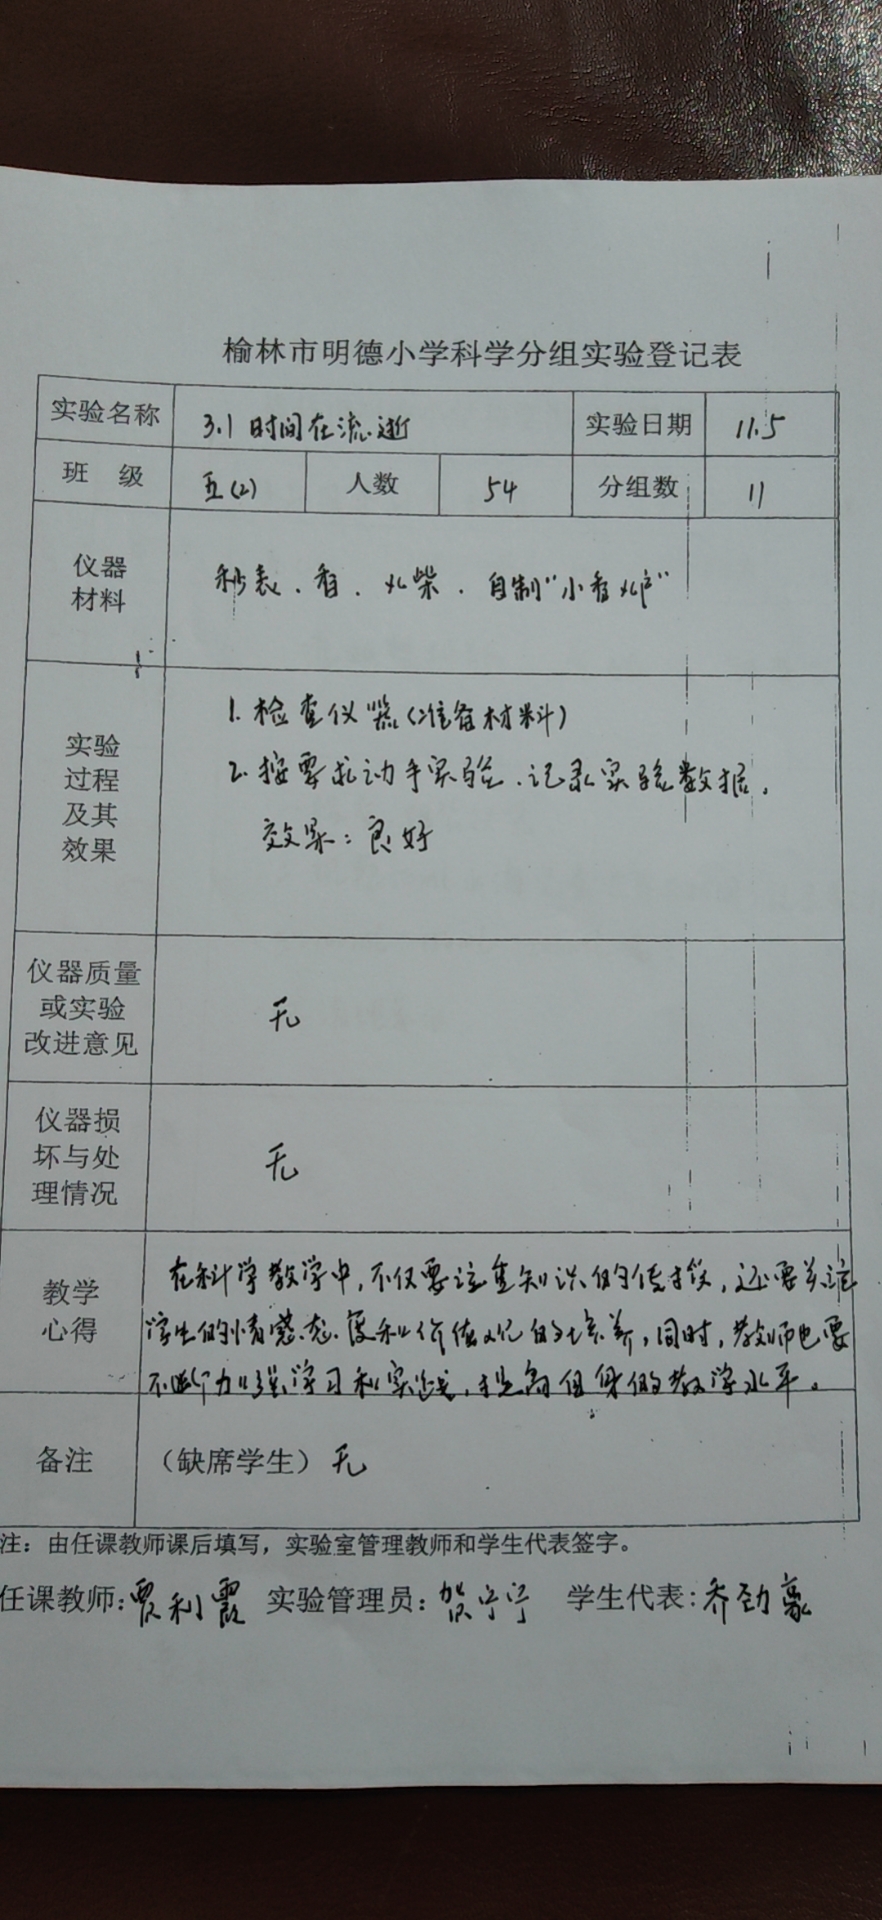 榆林市明德小学科学分组实验登记表
实验名称 3.1 时间在流逝 实验日期 11.5
班 级 五(2) 人数 54 分组数 11
仪器
材料
秒表、香、火柴、自制“小香炉”
实验
过程
及其
效果
1. 检查仪器(准备材料)
2. 按要求动手实验、记录实验数据。
效果：良好
仪器质量
或实验
改进意见
无
仪器损
坏与处
理情况
无
教学
心得
在科学教学中,不仅要注重知识的传授,还要关注
学生的情感态度和价值观的培养,同时,教师也要
不断加强学习和实践,提高自身的教学水平。
备注 (缺席学生) 无
注：由任课教师课后填写，实验室管理教师和学生代表签字。
任课教师: 贾利霞 实验管理员: 贺宁宁 学生代表: 乔劲豪